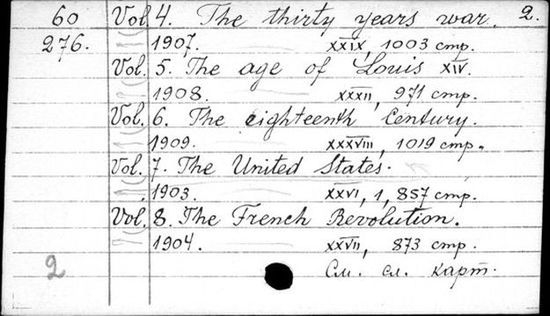 60 Vol 4. The thirty years war. 2.
276. 1907. XXIX, 1003 стр.
Vol. 5. The age of Louis XIV.
1908. XXXII, 971 стр.
Vol. 6. The eighteenth Century.
1909. XXXVIII, 1019 стр.
Vol. 7. The United States.
1903. XXVI, 1, 857 стр.
Vol. 8. The French Revolution.
1904. XXVII, 873 стр.
2 См. сл. карт.